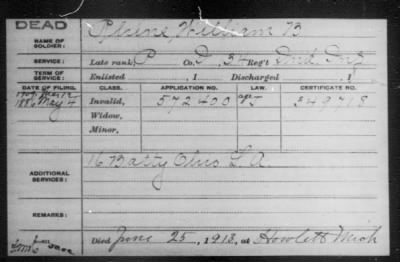 DEAD
NAME OF SOLDIER: William B
SERVICE: Late rank, P Co. D, 34 Reg't Ind. Inf
TERM OF SERVICE: Enlisted , 1 Discharged , 1
DATE OF FILING. CLASS. APPLICATION NO. LAW. CERTIFICATE NO.
1886 May 4 Invalid, 572400 349718
Widow,
Minor,
ADDITIONAL SERVICES: 16 Batty Ohio L A.
REMARKS:
Died June 25, 1913, at Howlett Mich